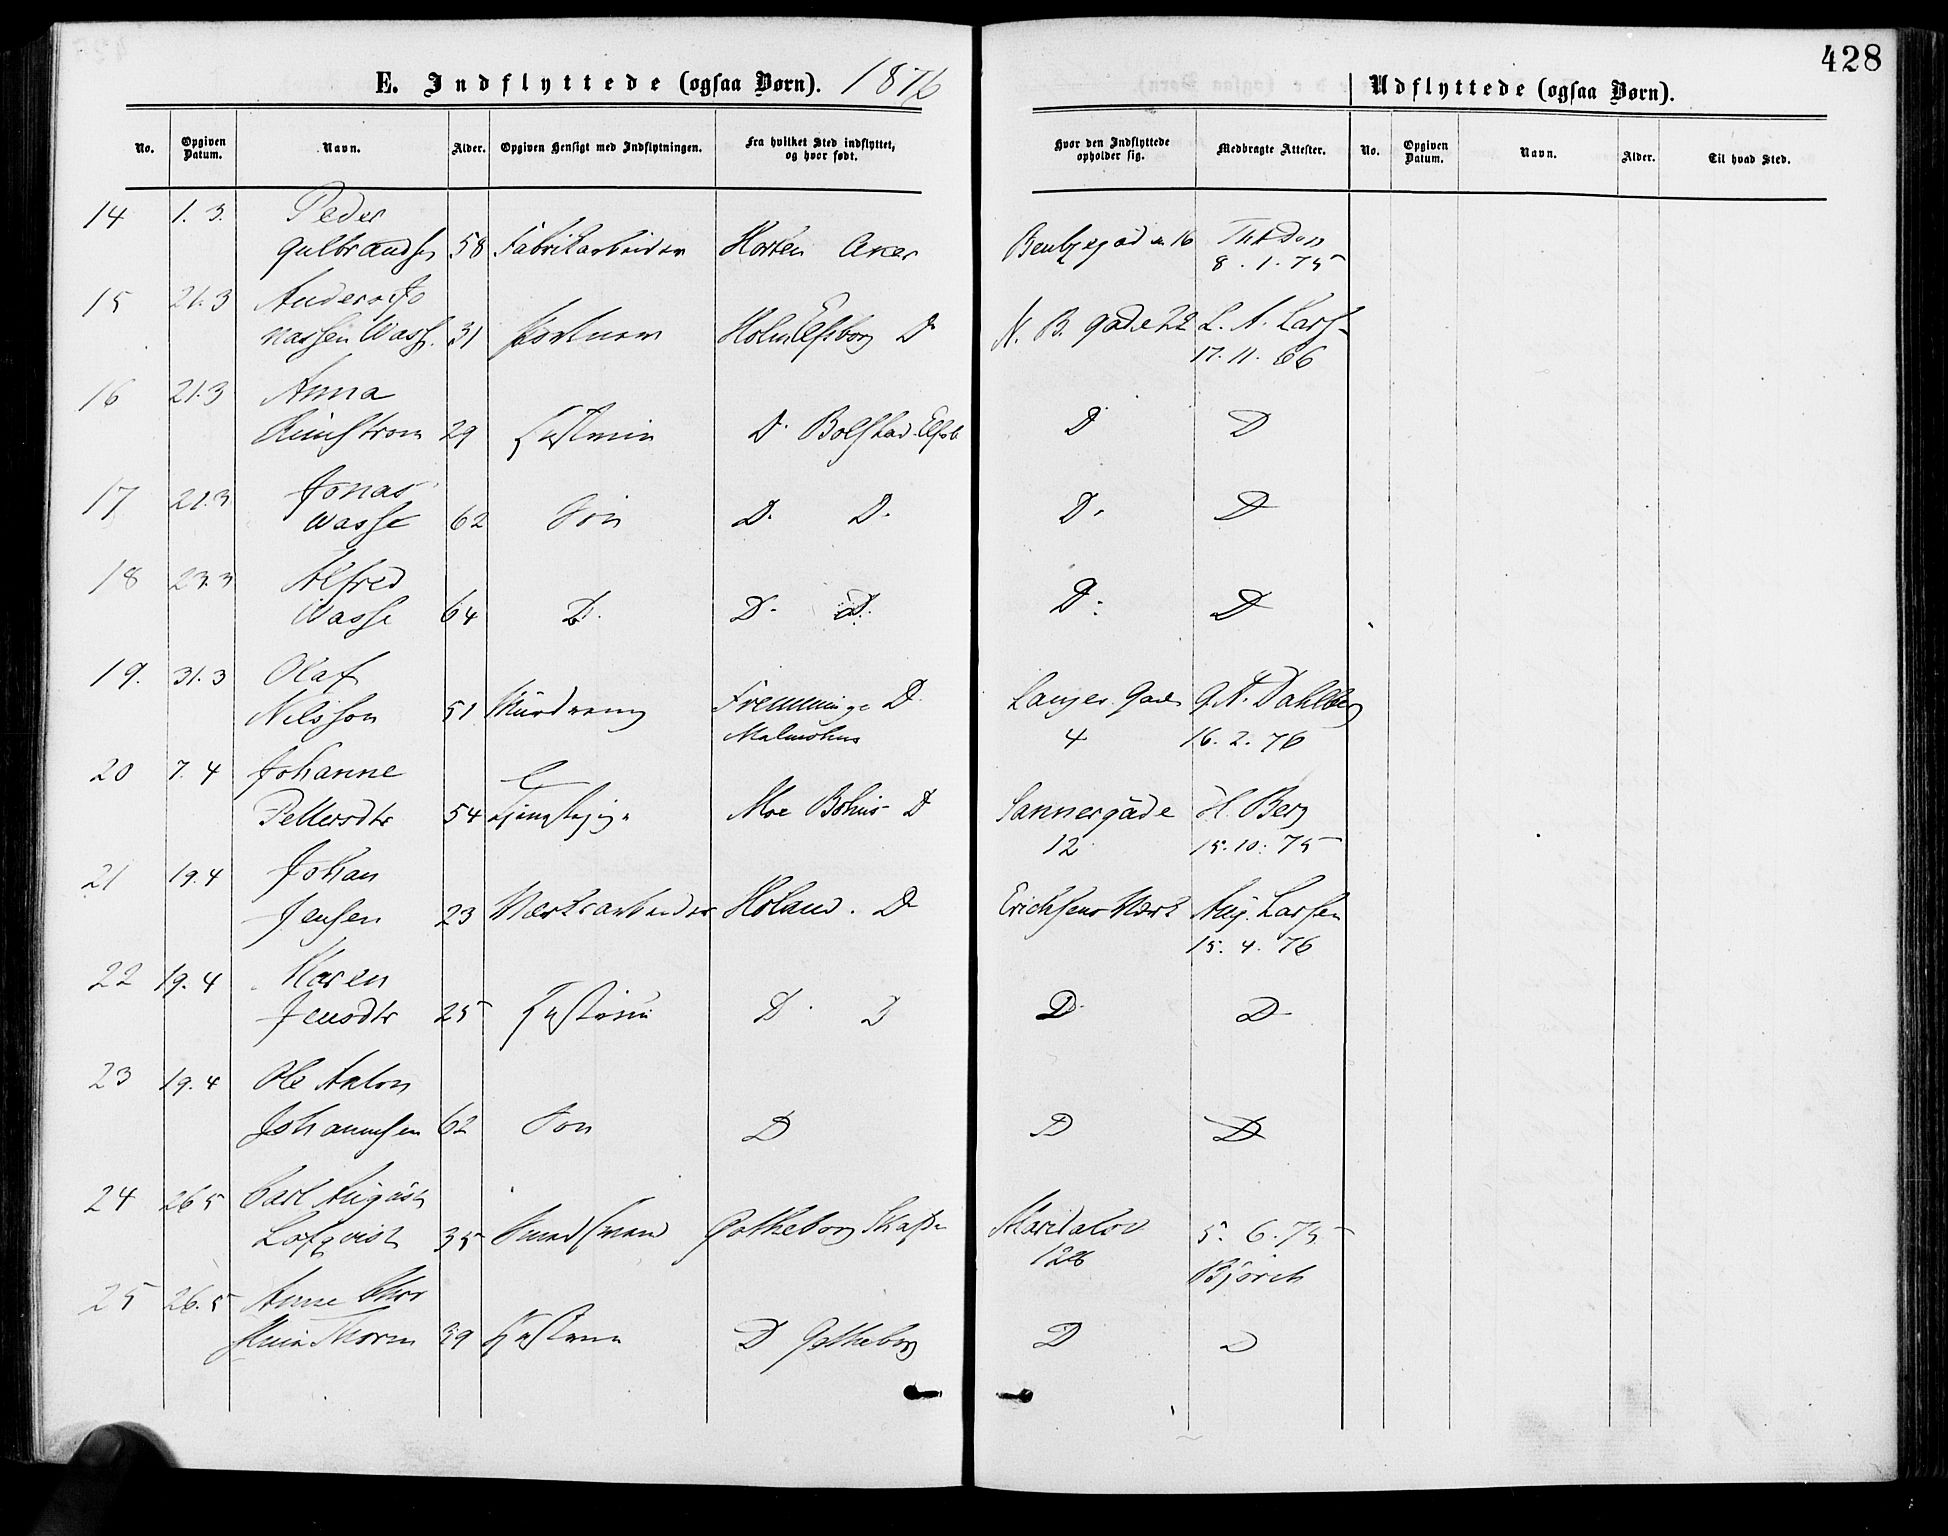 428
E. Indflyttede (ogsaa Børn). 1876
Udflyttede (ogsaa Børn).
No. Opgiven Datum. Navn. Alder. Opgiven Hensigt med Indflytningen. Fra hvilket Sted indflyttet, og hvor født. Hvor den Indflyttede opholder sig. Medbragte Attester. No. Opgiven Datum. Navn. Alder. Til hvad Sted.
14 1. 3. Peder
Gulbrandsen 58 Fabrikarbeider Horten Aker 16
8. 1. 75
15 21.3 Anders Jo
nassen Wasse 31 Holm Elfsborg D N. B. gade 22 L. A. Lars
17. 11. 66
16 21.3 Anna
29 Hustru D. Bolstad Elfsb D D
17 21.3 Jonas
Wasse 62 Søn D. D. D. D
18 23.3 Alfred
Wasse 64 D. D. D. D. D
19. 31.3 Olaf
Nilsson 51 D. Gade G. A. Dahlberg
Malmøhus 4 16. 2. 76
20 7. 4 Johanne
Pettersdtr 54 Moe Bohus D Sannergade H. Berg
12 15. 10. 75
21 19.4 Johan
Jensen 23 Værksarbeider Høland. D Erichsens Værk Aug. Larsen
15. 4. 76
22 19. 4 Karen
Jensdtr 25 Hustru D. D D D
23 19. 4 Ole Anton
Johannsen 62 Søn D D D
24 26 5 Carl August
Lofqvist 35 Gotheborg Maridalsv 5. 6. 75
126 Bjørch
25 26. 5 Anne
39 Hustru D Gotheborg D D